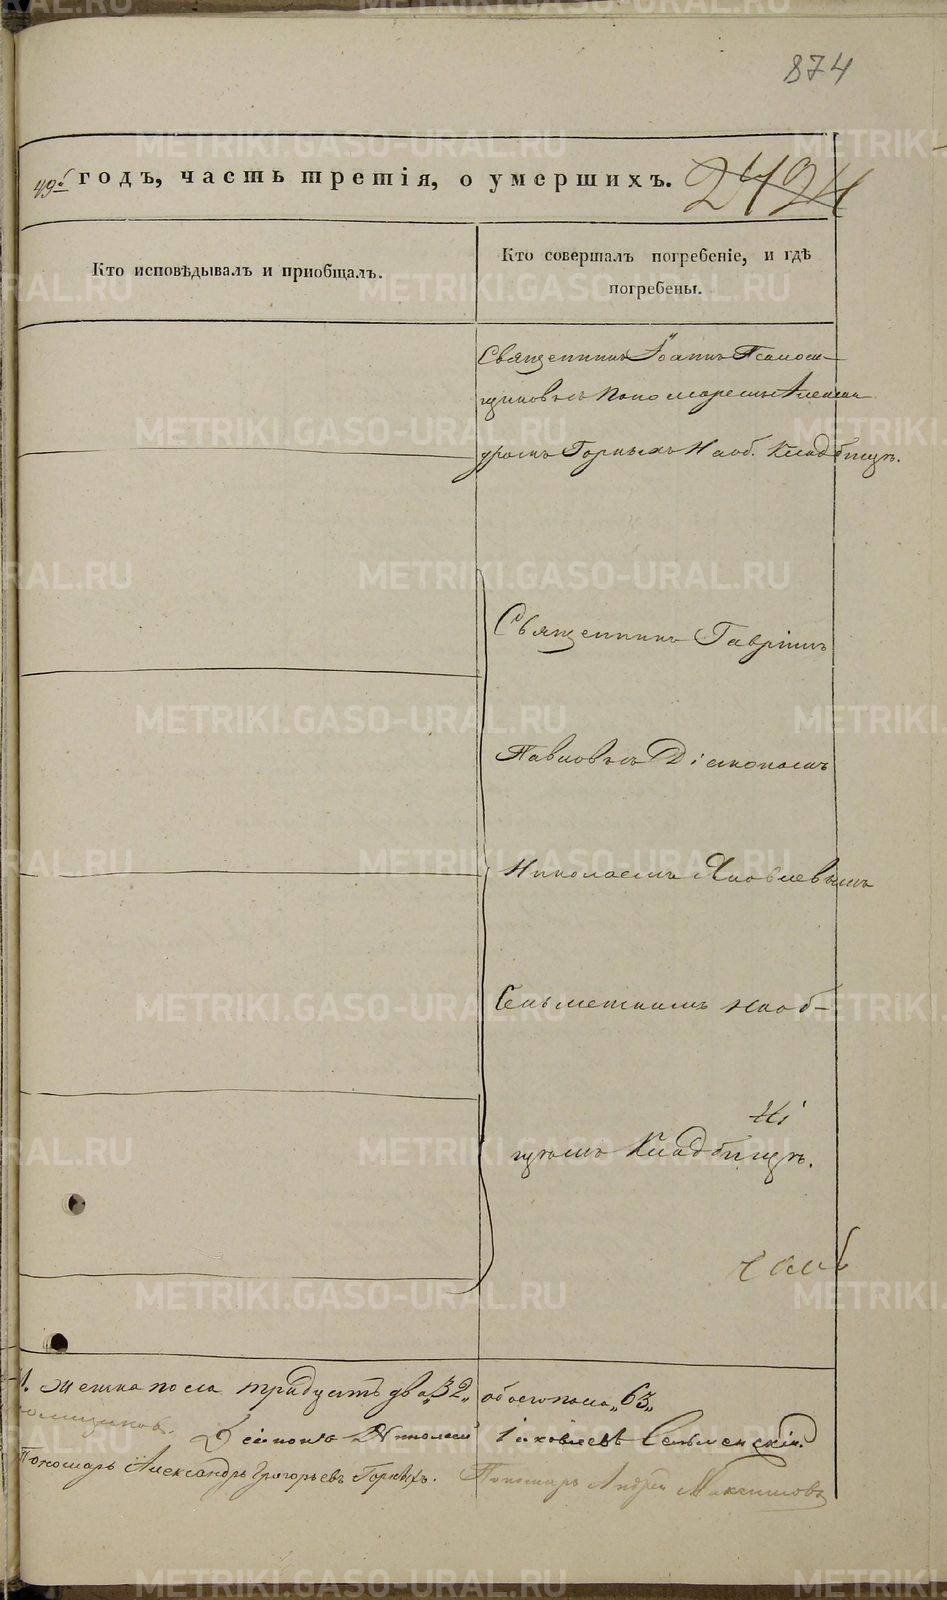 874
49го годъ, часть третія, о умершихъ. 2424
Кто исповѣдывалъ и приобщалъ.
Кто совершалъ погребеніе, и гдѣ
погребены.
Священникъ Іоаннъ
Пономаремъ Алексан
дромъ Горныхъ На об. Кладбищѣ.
Священникъ Гавріилъ
Павловъ съ Діакономъ
Николаемъ Яковлевымъ
на об-
щемъ Кладбищѣ.
женска пола тридцать два „32„ обоего пола „63„
Діаконъ Николай Іаковлевъ
Пономарь Александръ Григорьевъ Горныхъ. Пономарь Андрей Максимовъ
METRIKI.GASO-URAL.RU